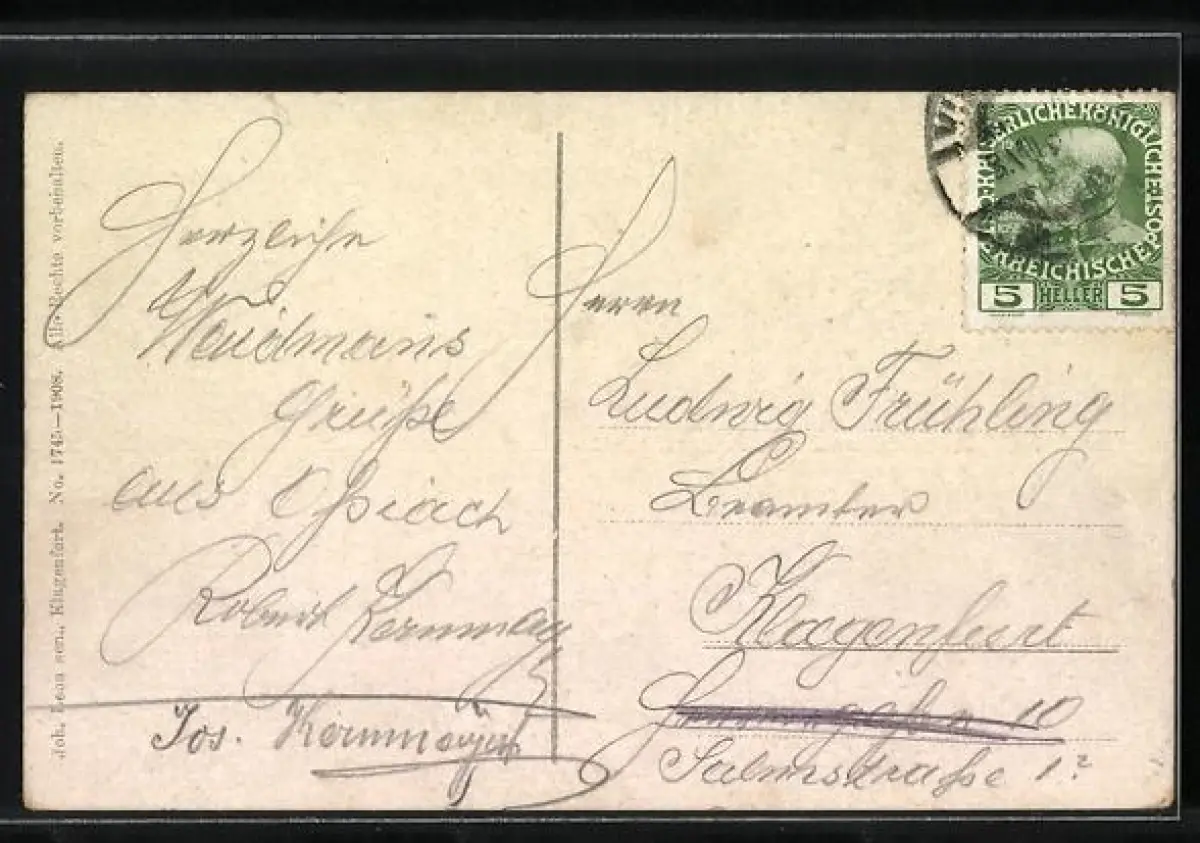 Joh. Leon sen., Klagenfurt. No. 1745—1908. Alle Rechte vorbehalten.
Herzliche
Waidmanns
Grüße
aus Ossiach
Robert Kernmay
Jos. Kernmayer
KAISERLICHE KÖNIGLICHE
ÖSTERREICHISCHE POST
5 HELLER 5
Herrn
Ludwig Frühling
Beamter
Klagenfurt
10
Salmstraße 1?